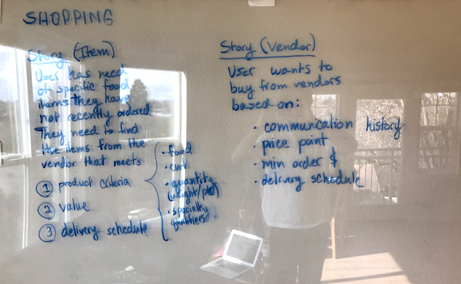 SHOPPING
Story (Item)
User has need
of specific food
items they have
not recently ordered.
They need to find
the items from the
vendor that meets
① product criteria
② value
③ delivery schedule
• food
• cut
• quantity
(weight/
• specialty
Story (Vendor)
User wants to
buy from vendors
based on:
• communication history
• price point
• min order $
• delivery schedule